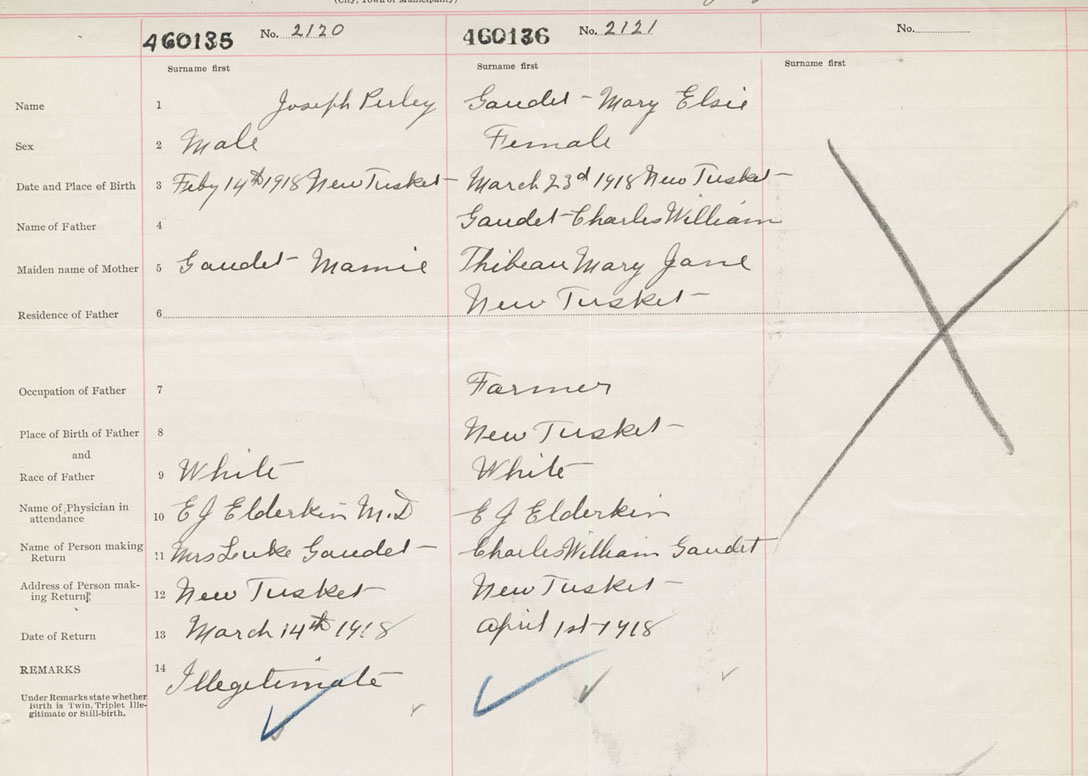 (City, Town or Municipality)
460135 No. 2120 460136 No. 2121 No.
Surname first Surname first Surname first
Name 1 Joseph Perley Gaudet - Mary Elsie
Sex 2 Male Female
Date and Place of Birth 3 Feby 14th 1918 New Tusket March 23d 1918 New Tusket
Name of Father 4 Gaudet Charles William
Maiden name of Mother 5 Gaudet Mamie Thibeau Mary Jane
Residence of Father 6 New Tusket
Occupation of Father 7 Farmer
Place of Birth of Father 8 New Tusket
and
Race of Father 9 White White
Name of Physician in
attendance 10 E J Elderkin M.D E J Elderkin
Name of Person making
Return 11 Mrs Luke Gaudet Charles William Gaudet
Address of Person mak-
ing Return 12 New Tusket New Tusket
Date of Return 13 March 14th 1918 April 1st 1918
REMARKS 14 Illegetimate
Under Remarks state whether
Birth is Twin, Triplet Ille-
gitimate or Still-birth.